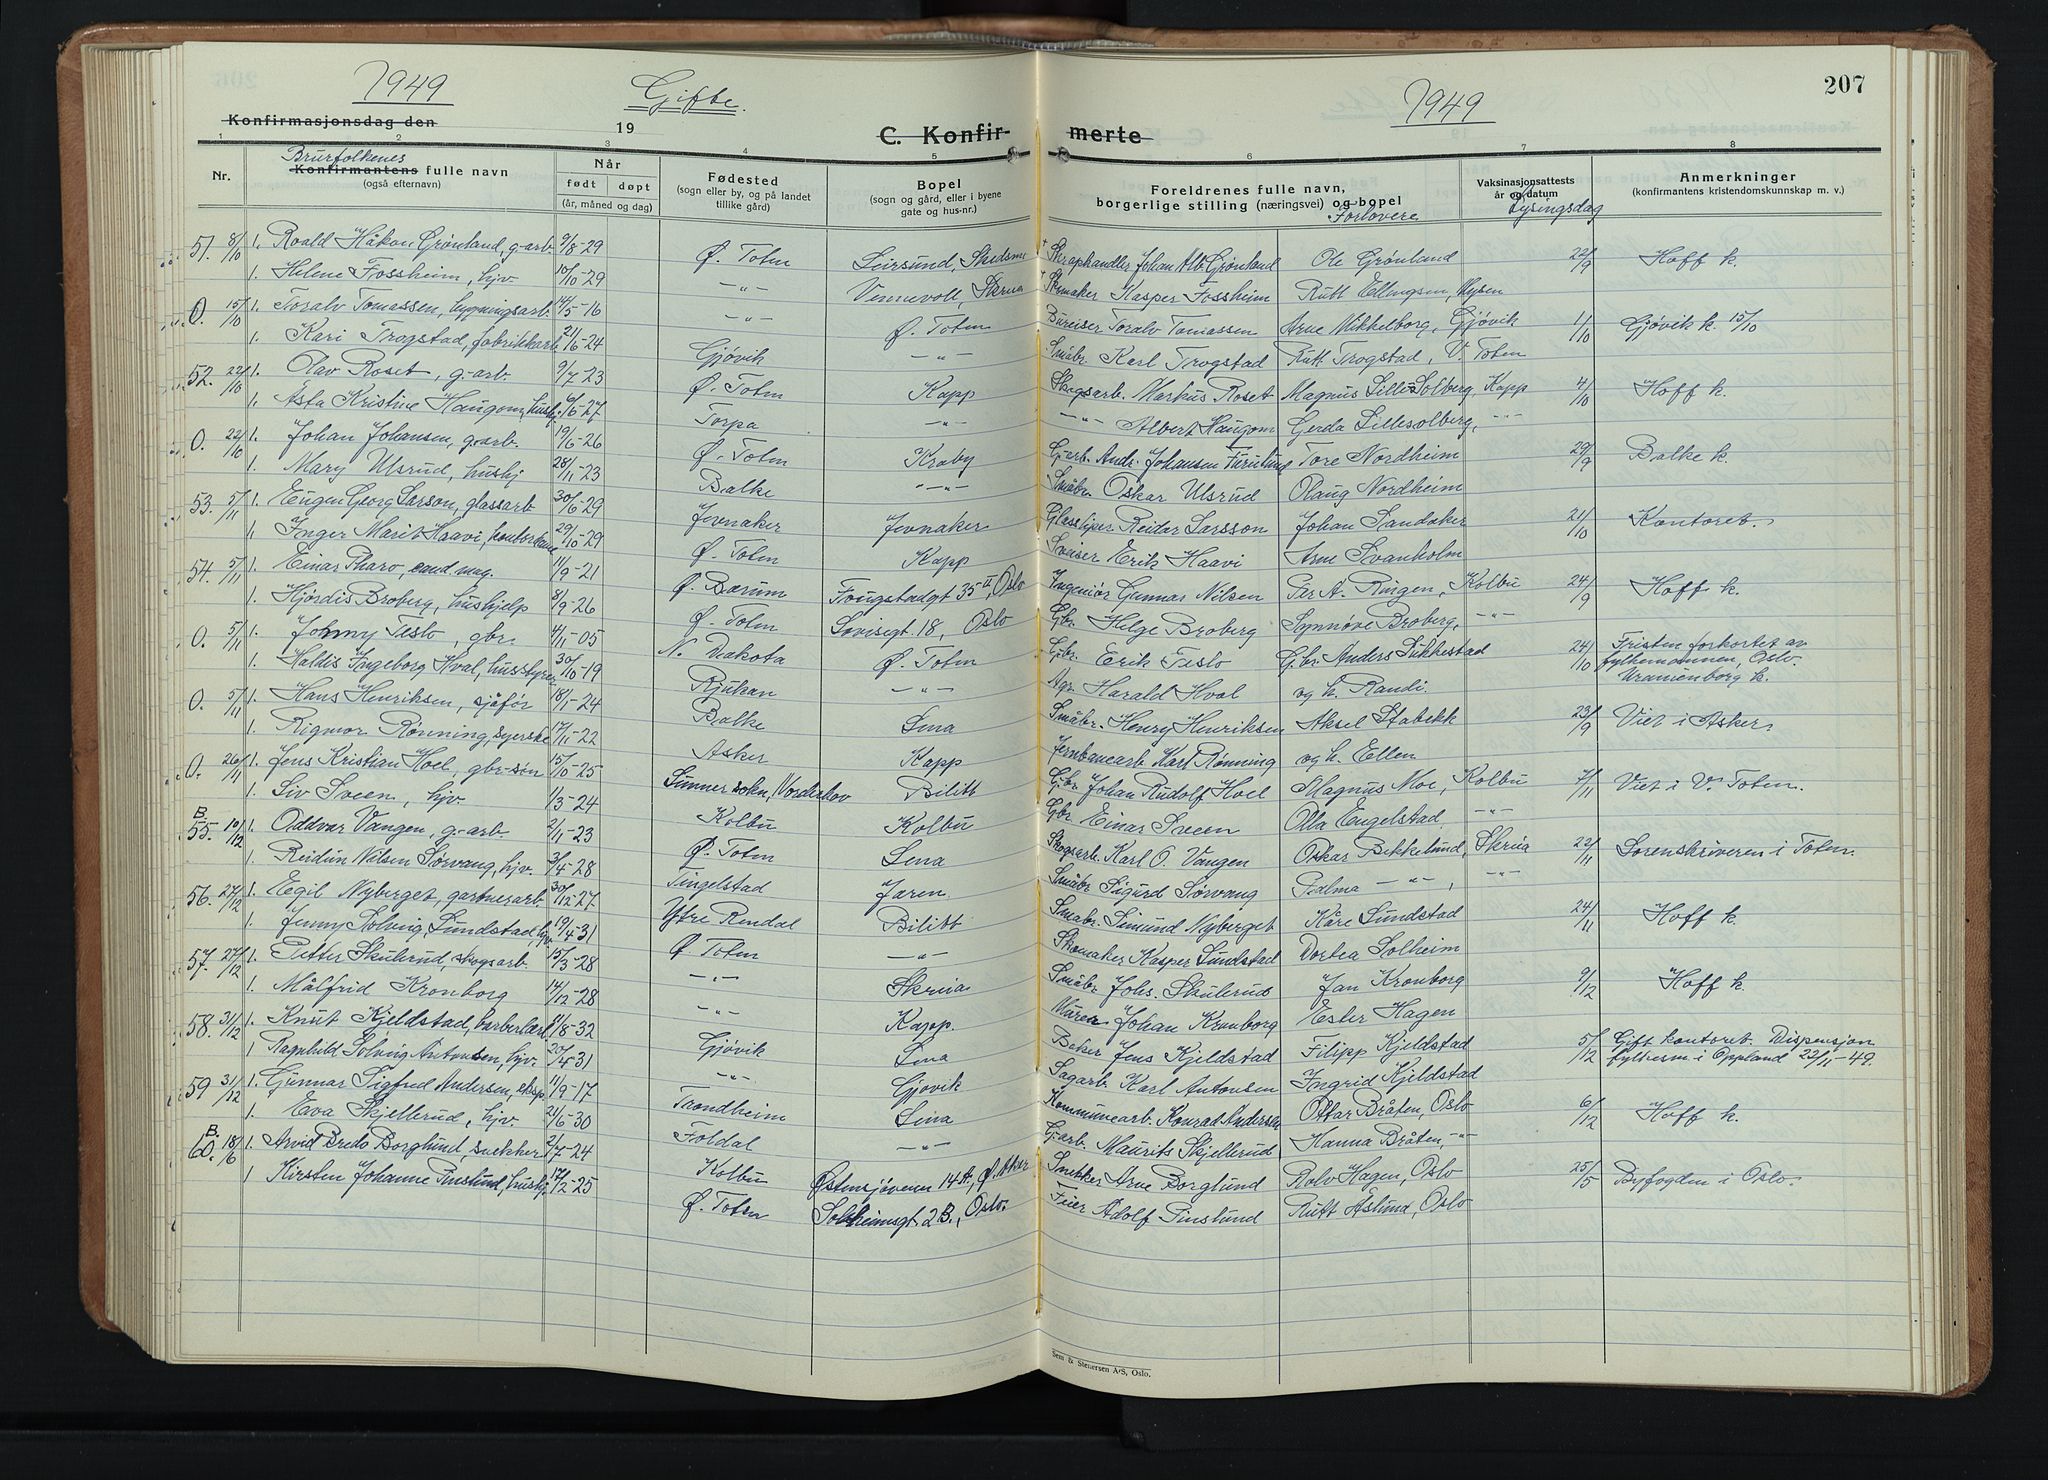 1949 Gifte. 1949 207
Konfirmasjonsdag den 19 C. Konfirmerte
1 2 3 4 5 6 7 8
Nr. Brurfolkenes Konfirmantens fulle navn Når Fødested Bopel Foreldrenes fulle navn, Vaksinasjonsattests Anmerkninger
(også efternavn) født døpt (sogn eller by, og på landet (sogn og gård, eller i byene borgerlige stilling (næringsvei) og bopel år og datum (konfirmantens kristendomskunnskap m. v.)
(år, måned og dag) tillike gård) gate og hus-nr.) Forlovere Lysingsdag
51. 8/10 1. Roald Håkon Grønland, g-arb. 9/8-29 Ø. Toten Leirsund, Skedsmo † Skraphandler Johan Alb. Grønland Ole Grønland 22/9 Hoff k.
1. Helene Fossheim, hjv. 10/10-29 -"- Vennevoll, Skreia † Skomaker Kasper Fossheim Rutt Ellingsen, Mysen
0. 15/10 1. Toralv Tomassen, bygningsarb. 14/5-16 -"- Ø. Toten Bureiser Toralv Tomassen Arne Mikkelborg, Gjøvik 1/10 Gjøvik k. 15/10
1. Kari Trogstad, fabrikkarb. 21/6-24 Gjøvik -"- Småbr. Karl Trogstad Rutt Trogstad, V. Toten
52. 22/10 1. Olav Roset, g-arb. 9/7-23 Ø. Toten Kapp Skogsarb. Markus Roset Magnus Lille-Solberg, Kapp 4/10 Hoff k.
1. Asta Kristine Haugom, hushj. 6/6-27 Torpa -"- -"- Albert Haugom Gerda Lillesolberg, -"-
0. 22/10 1. Johan Johansen, g-arb. 19/6-26 Ø. Toten Kraby G.arb. Andr. Johansen Furulund Tore Nordheim 29/9 Balke k.
1. Mary Ulsrud, hushj. 28/11-23 Balke -"- Småbr. Oskar Ulsrud Olaug Nordheim
53. 5/11 1. Eugen Georg Larsson, glassarb. 30/6-29 Jevnaker Jevnaker Glassliper Reidar Larsson Johan Sandaker 21/10 Kontoret.
1. Inger Marit Haavi, kontordame 29/10-29 Ø. Toten Kapp Sveiser Erik Haavi Arne Svanholm
54. 5/11 1. Einar Tharo, cand. mag. 11/9-21 Ø. Bærum Fougstadgt 35 II, Oslo Ingeniør Gunnar Nilsen Per A. Ringen, Kolbu 24/9 Hoff k.
1. Hjørdis Broberg, hushjelp 8/9-26 Ø. Toten Lovisegt. 18, Oslo Gbr. Helge Broberg Synnøve Broberg, -"-
0. 5/11 1. Johny Teslo, gbr. 4/11-05 N. Dakota Ø. Toten G.br. Erik Teslo G.br. Anders Lükkestad 24/10 Fristen forkortet av
1. Haldis Ingeborg Hval, husstyrer 30/10-19 Rjukan -"- Agr. Harald Hval og h. Randi. fylkemannen, Oslo. Uranienborg k.
0. 5/11 1. Hans Henriksen, sjåfør 18/1-24 Balke Lena Småbr. Henry Henriksen Aksel Stabekk 23/9 Viet i Asker.
1. Rigmor Rønning, syerske 17/11-22 Asker Kapp Jernbanearb. Karl Rønning og h. Ellen
0. 26/11 1. Jens Kristian Hoel, gbr-søn 15/10-25 Lunner sokn, Norderhov Bilitt G.br. Johan Rudolf Hoel Magnus Moe, Kolbu 7/11 Viet i V. Toten.
1. Liv Sveen, hjv. 1/3-24 Kolbu Kolbu Gbr. Einar Sveen Olla Engelstad -"-
B. 55. 10/12 1. Oddvar Vangen, g-arb. 2/11-23 Ø. Toten Lena Skogsarb. Karl O. Vangen Oskar Bekkelund, Skreia 22/11 Sorenskriveren i Toten.
1. Reidun Nilsen Sørvang, hjv. 3/4-28 Tingelstad Jaren Småbr. Sigurd Sørvang Palma -"-, -"-
56. 27/12 1. Egil Nyberget, gartnerarb. 30/12-27 Ytre Rendal Bilitt Småbr. Simund Nyberget Kåre Sundstad 24/11 Hoff k.
1. Jenny Solveig Sundstad, hjv. 19/4-31 Ø. Toten -"- Skomaker Kasper Sundstad Dortea Solheim
57. 27/12 1. Petter Skulerud, skogsarb. 15/3-28 -"- Skreia Småbr. Johs. Skulerud Jan Kronborg 9/12 Hoff k.
1. Målfrid Kronborg 14/12-28 -"- Kapp. Murer Johan Kronborg Ester Hagen
58. 31/12 1. Knut Kjeldstad, barberlærl. 11/8-32 Gjøvik Lena Baker Jens Kjeldstad Filipp Kjeldstad 5/12 Gift kontoret. Dispensjon
1 Ragnhild Solveig Antonsen, hjv. 20/4-31 -"- Gjøvik Sagarb. Karl Antonsen Ingrid Kjeldstad fylkesm. i Oppland 23/11-49.
59 31/12 1. Gunnar Sigfred Andersen, eksp. 11/9-17 Trondheim Lena Kommunearb. Konrad Andersen Ottar Bråten, Oslo 6/12 Hoff k.
1. Eva Skjellerud, hjv. 21/6-30 Foldal -"- G-arb. Maurits Skjellerud Hanna Bråten, -"-
B. 60. 18/6 1. Arvid Breda Borglund, snekker 2/7-24 Kolbu Østensjøveien 14 A, Ø. Aker Snekker Arne Borglund Rolv Hagen, Oslo 25/5 Byfogden i Oslo.
1 Kirsten Johanne Pinslund, hushj. 17/2-25 Ø. Toten Solheimsgt 2 B., Oslo. Feier Adolf Pinslund Rutt Åslund, Oslo
Sem & Stenersen A/S, Oslo.